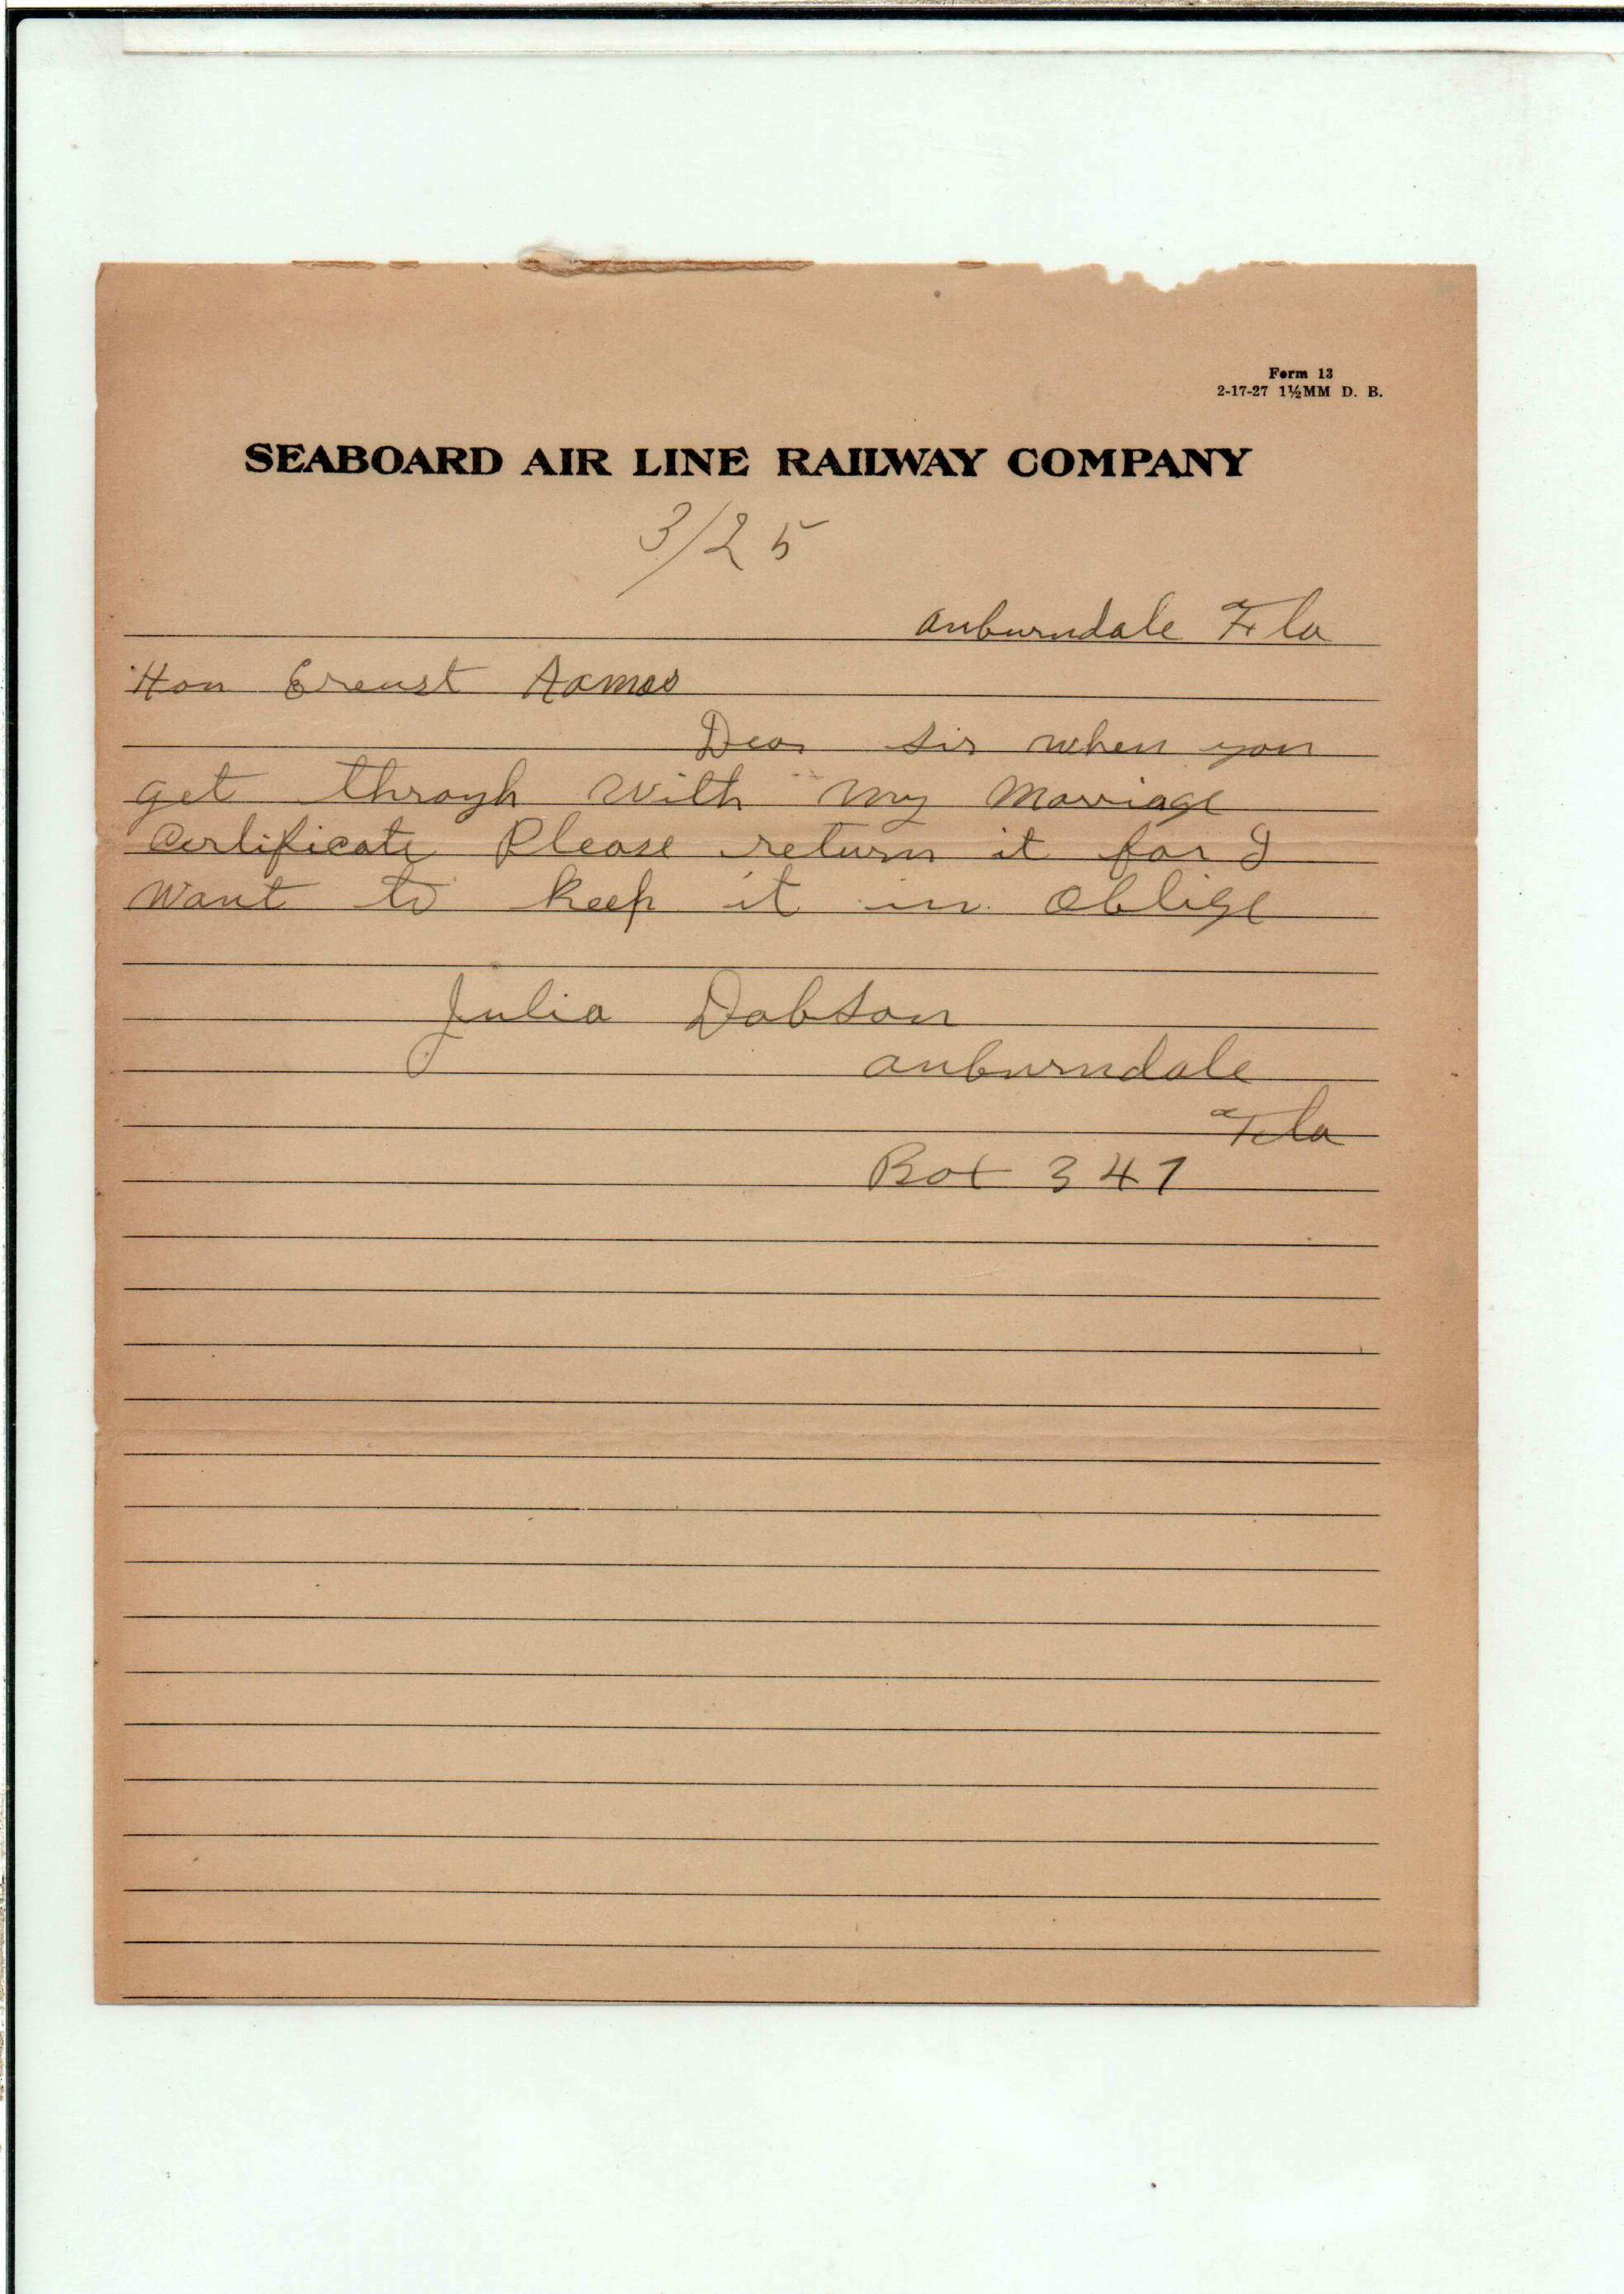 Form 13
2-17-27 1½MM D. B.
SEABOARD AIR LINE RAILWAY COMPANY
3/25
auburndale Fla
Hon Ernest Aamos
Dear sir when you
get throygh with my Marriage
Certificate Please return it for I
want to keep it in oblige
Julia Dobson
auburndale
Fla
Box 347